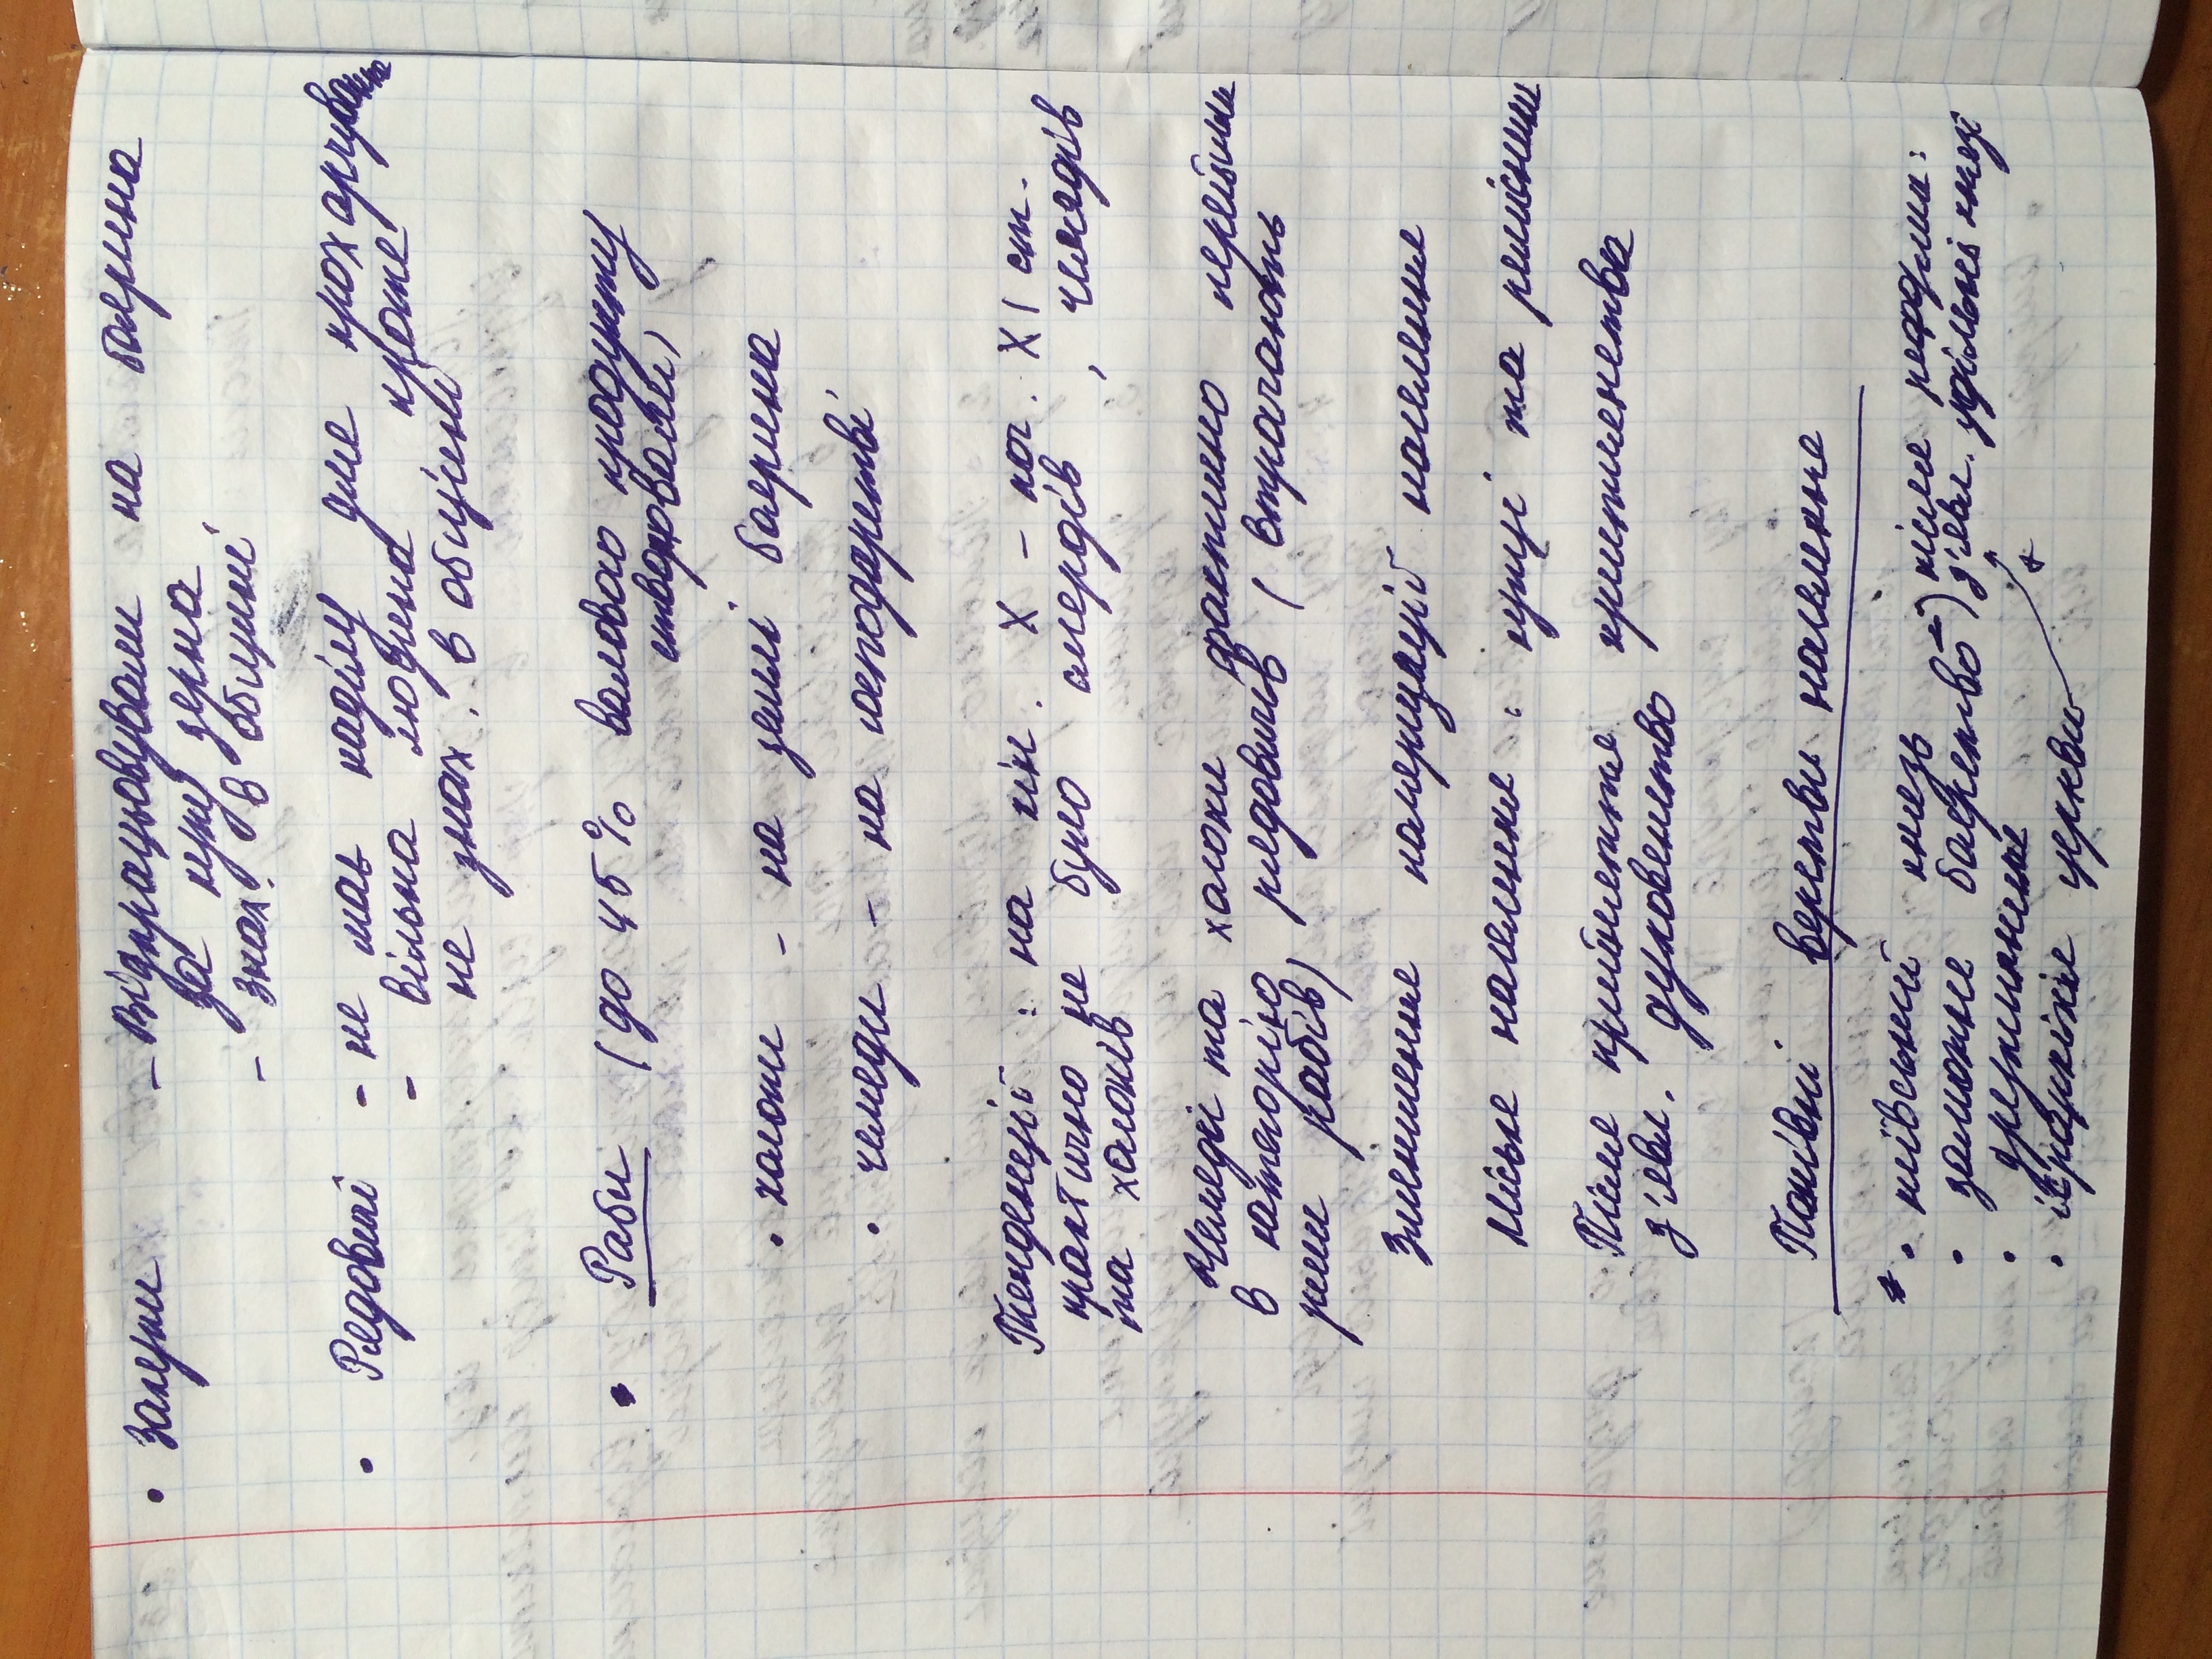 • Закупи - Відпрацьовували на боярина
за купу зерна,
- знах. в общині
• Рядовичі - не має наділу для прохарчування
- вільна людина, проте
не знах. в общині
• Раби (до 45% валового продукту
створювали)
• холопи - на землі боярина
• челяди - на господарстві
Тенденції: на кін. X - поч. XI ст.
практично не було смердів, челядів
та холопів
Челяді та холопи фактично перейшли
в категорію рядовичів (втрачають
риси рабів)
Зменшення поляризації населення
Міське населення: купці та ремісники
Після прийняття християнства
з'явл. духовенство
Панівні верстви населення
• київський князь
• заможне боярство) після реформ:
з'явл. удільні князі
• дружинники
• ієрархія церкви